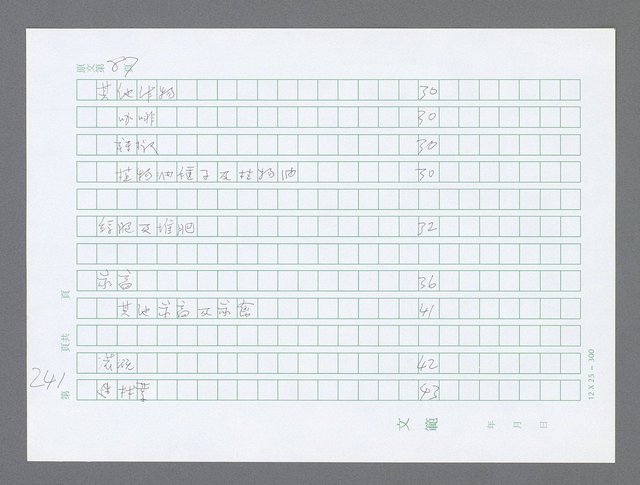 原文第 頁
其他作物 30
咖啡 30
30
植物油種子及植物油 30
給肥及堆肥 32
家畜 36
其他家畜及家禽 41
灌溉 42
林業 43
241
第 頁共 頁
12 X 25 = 300
文範 年 月 日